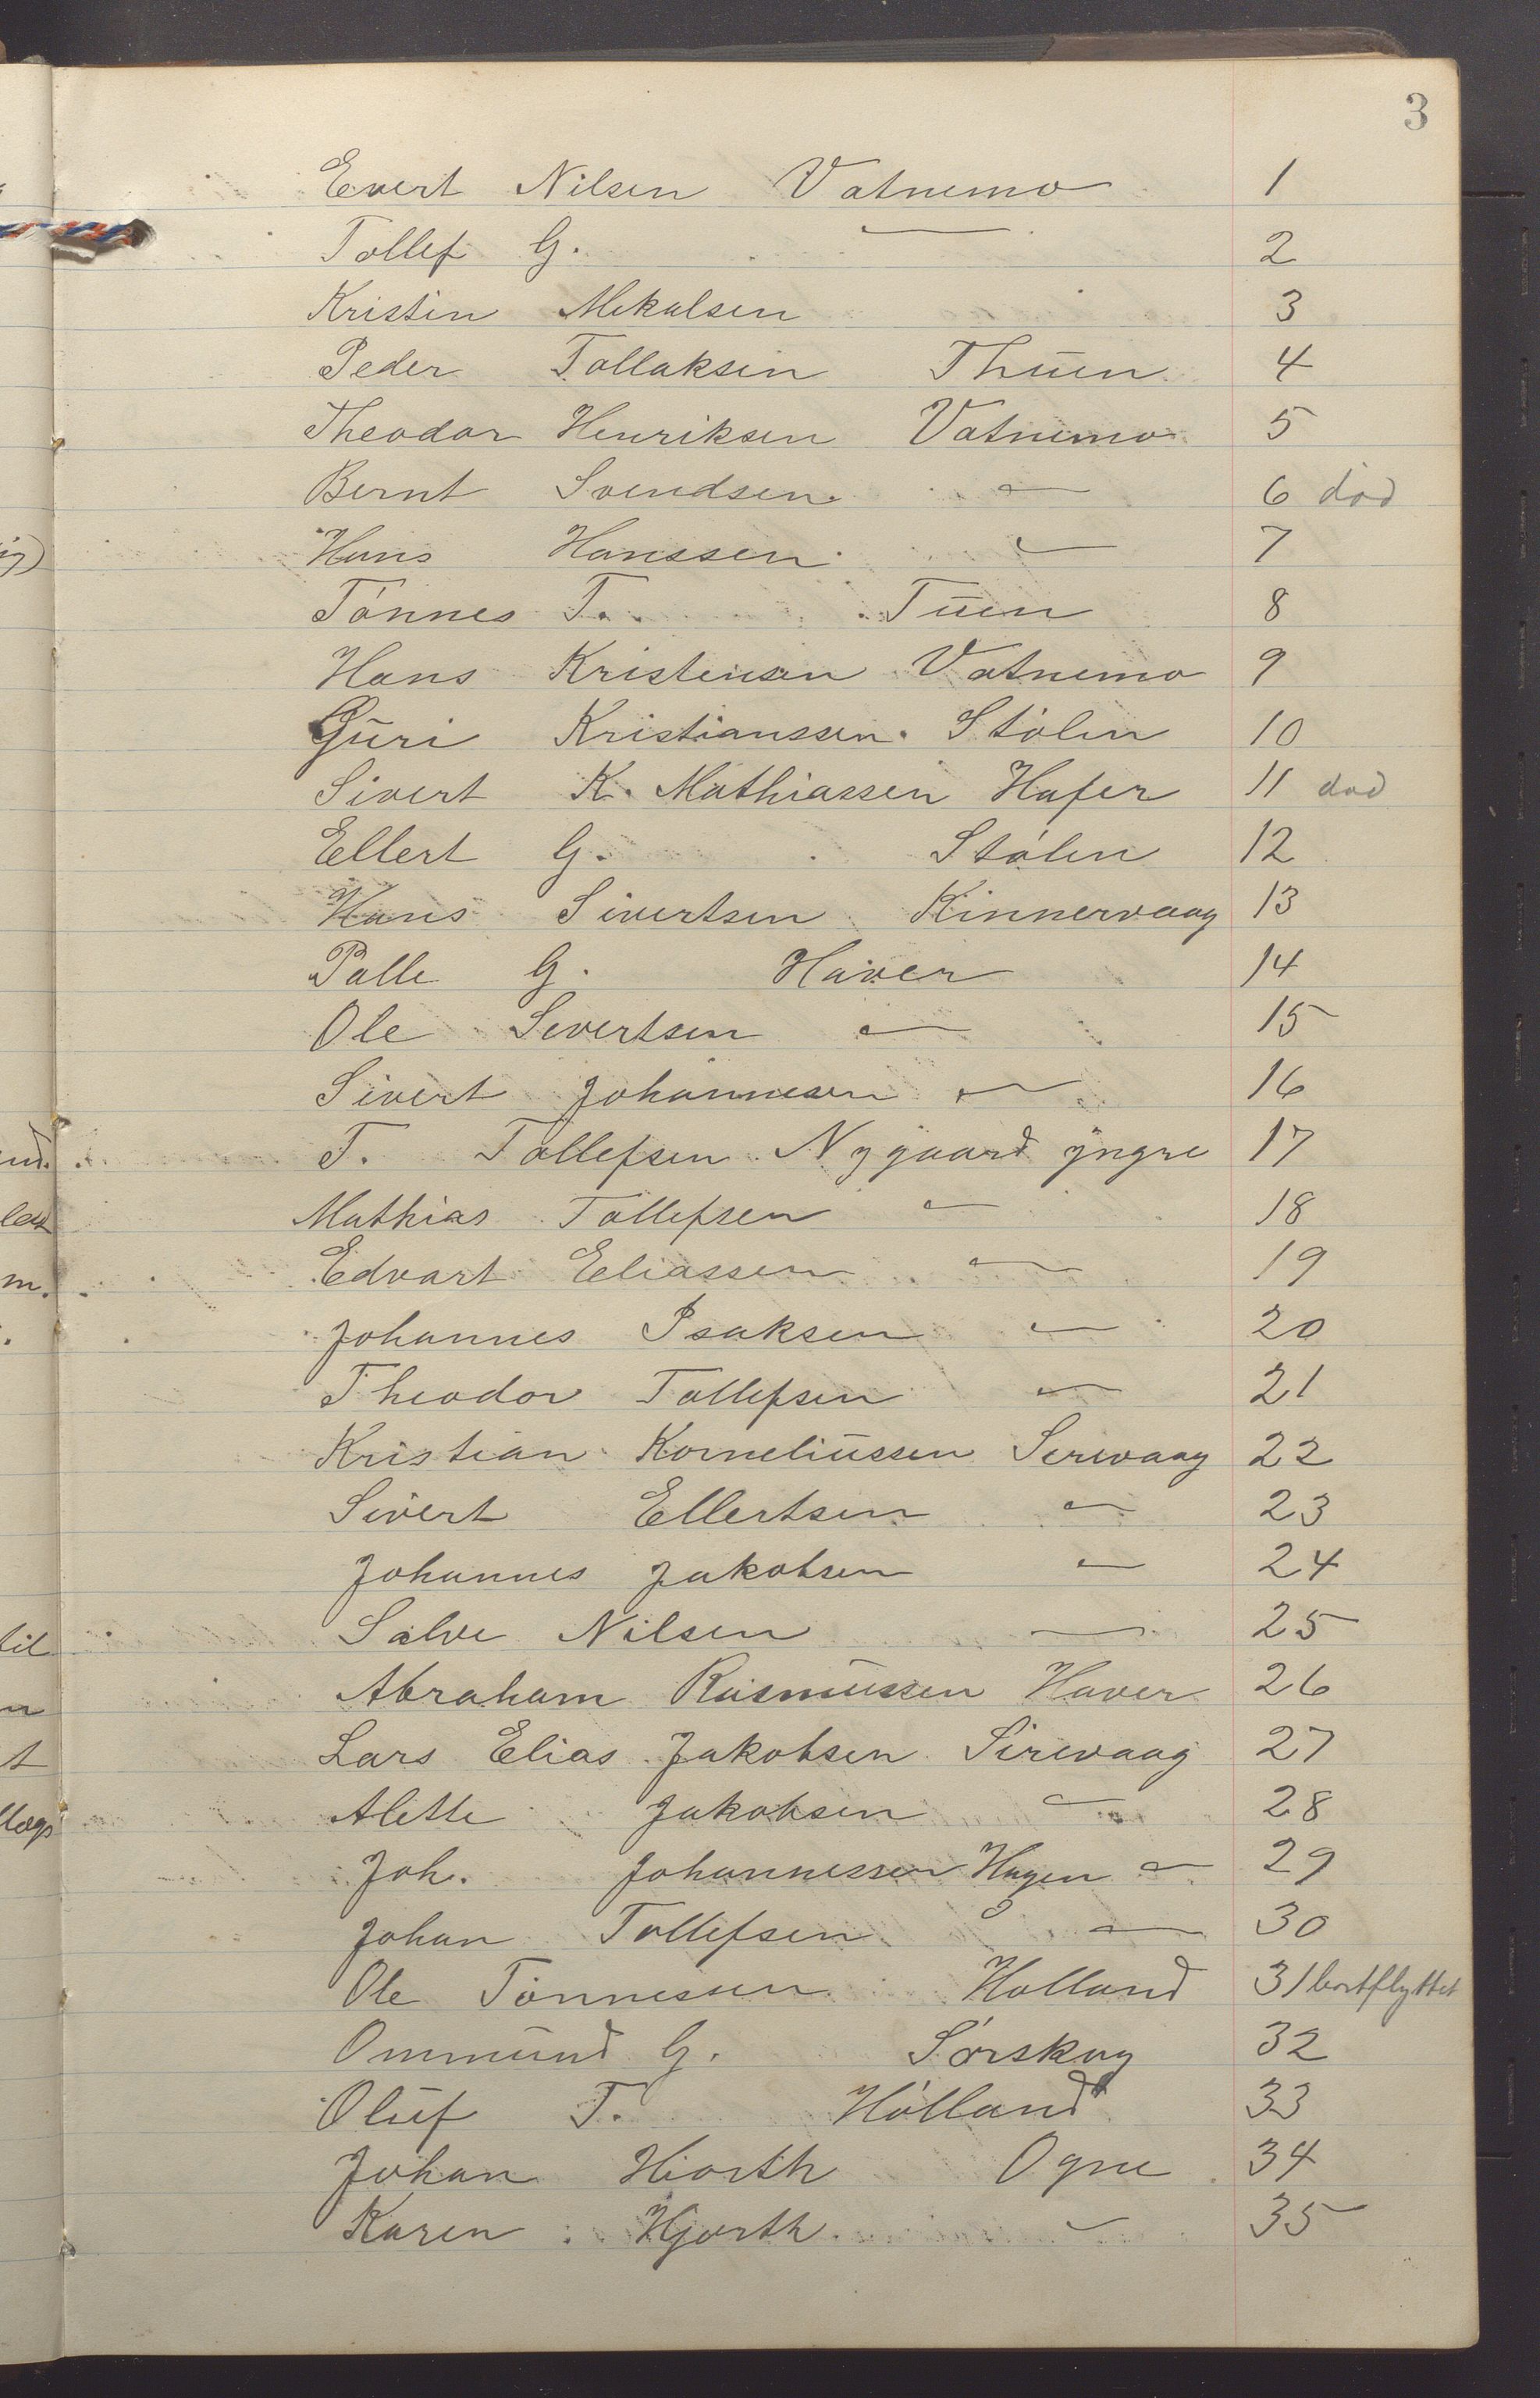 3
Evert Nilsen Vatnemo 1
Tollef G. — 2
Kristin Mikalsen 3
Peder Tollaksen Thuen 4
Theodor Henriksen Vatnemo 5
Bernt Svendsen — 6 død
Hans Hanssen — 7
Tónnes T. Tuen 8
Hans Kristensen Vatnemo 9
Guri Kristianssen Stólen 10
Sivert K. Mathiassen Hafer 11 død
Ellert G. Stólen 12
Hans Sivertsen Kinnervaag 13
Palle G. Haver 14
Ole Sivertsen — 15
Sivert Johannesen — 16
T. Tollefsen Nygaard yngre 17
Mathias Tollefsen — 18
Edvart Eliassen — 19
Johannes Isaksen — 20
Theodor Tollefsen — 21
Kristian Korneliussen Sirevaag 22
Sivert Ellertsen — 23
Johannes Jakobsen — 24
Salve Nilsen — 25
Abraham Rasmussen Haver 26
Lars Elias Jakobsen Sirevaag 27
Alette Jakobsen — 28
Joh. Johannessen Hagen — 29
Johan Tollefsen — 30
Ole Tónnessen Holland 31 bortflyttet
Ommund G. Sórskog 32
Oluf T. Hólland 33
Johan Hiorth Ogne 34
Karen Hjorth — 35